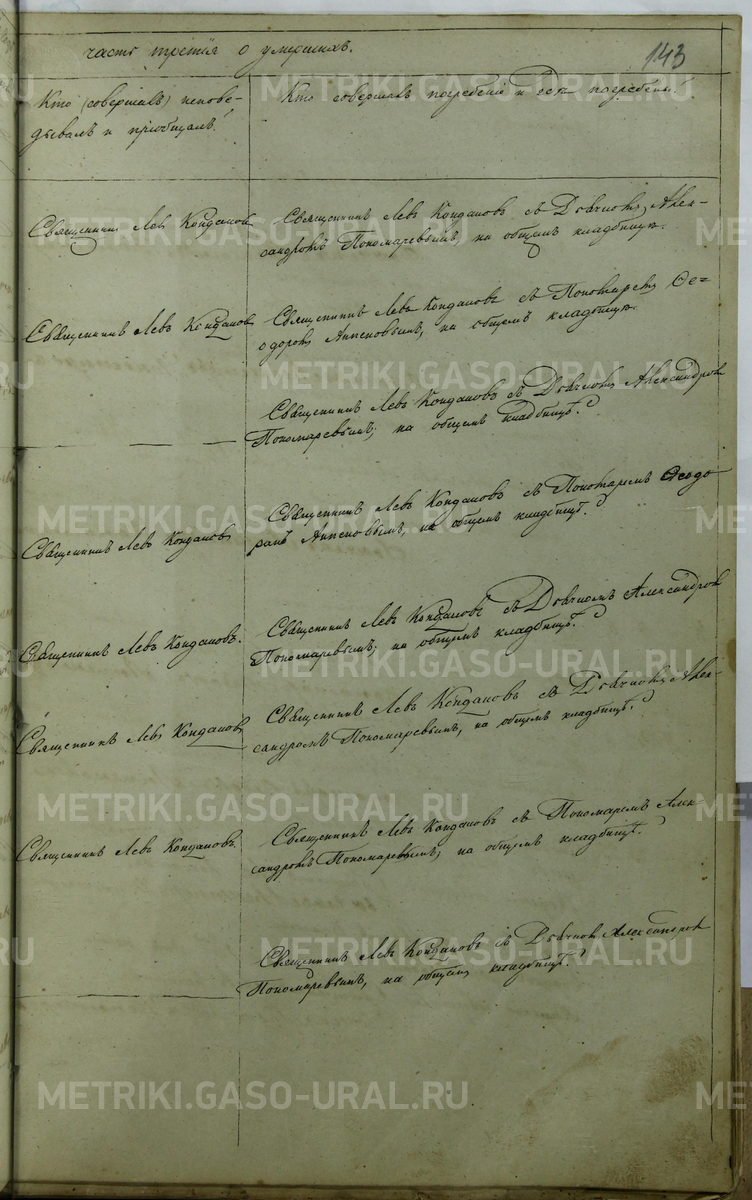 часть третiя о умершихъ.
143
Кто (совершалъ) исповѣ-
дывалъ и прiобщалъ.
Кто совершалъ погребенiе и гдѣ погребены.
Священникъ Левъ Кондаковъ
Священникъ Левъ Кондаковъ съ Дьячкомъ Алек-
сандромъ Пономаревымъ, на общемъ кладбищѣ.
Священникъ Левъ Кондаковъ
Священникъ Левъ Кондаковъ съ Пономаремъ Ѳе-
одоромъ, на общемъ кладбищѣ.
Священникъ Левъ Кондаковъ съ Дьячкомъ Александромъ
Пономаревымъ, на общемъ кладбищѣ.
Священникъ Левъ Кондаковъ
Священникъ Левъ Кондаковъ съ Пономаремъ Ѳеодо
ромъ, на общемъ кладбищѣ.
Священникъ Левъ Кондаковъ.
Священникъ Левъ Кондаковъ съ Дьячкомъ Александромъ
Пономаревымъ, на общемъ кладбищѣ.
Священникъ Левъ Кондаковъ
Священникъ Левъ Кондаковъ съ Дьячкомъ Алек-
сандромъ Пономаревымъ, на общемъ кладбищѣ.
Священникъ Левъ Кондаковъ.
Священникъ Левъ Кондаковъ съ Пономаремъ Алек-
сандромъ Пономаревымъ, на общемъ кладбищѣ.
Священникъ Левъ Кондаковъ съ Дьячкомъ Александромъ
Пономаревымъ, на общемъ кладбищѣ.
METRIKI.GASO-URAL.RU